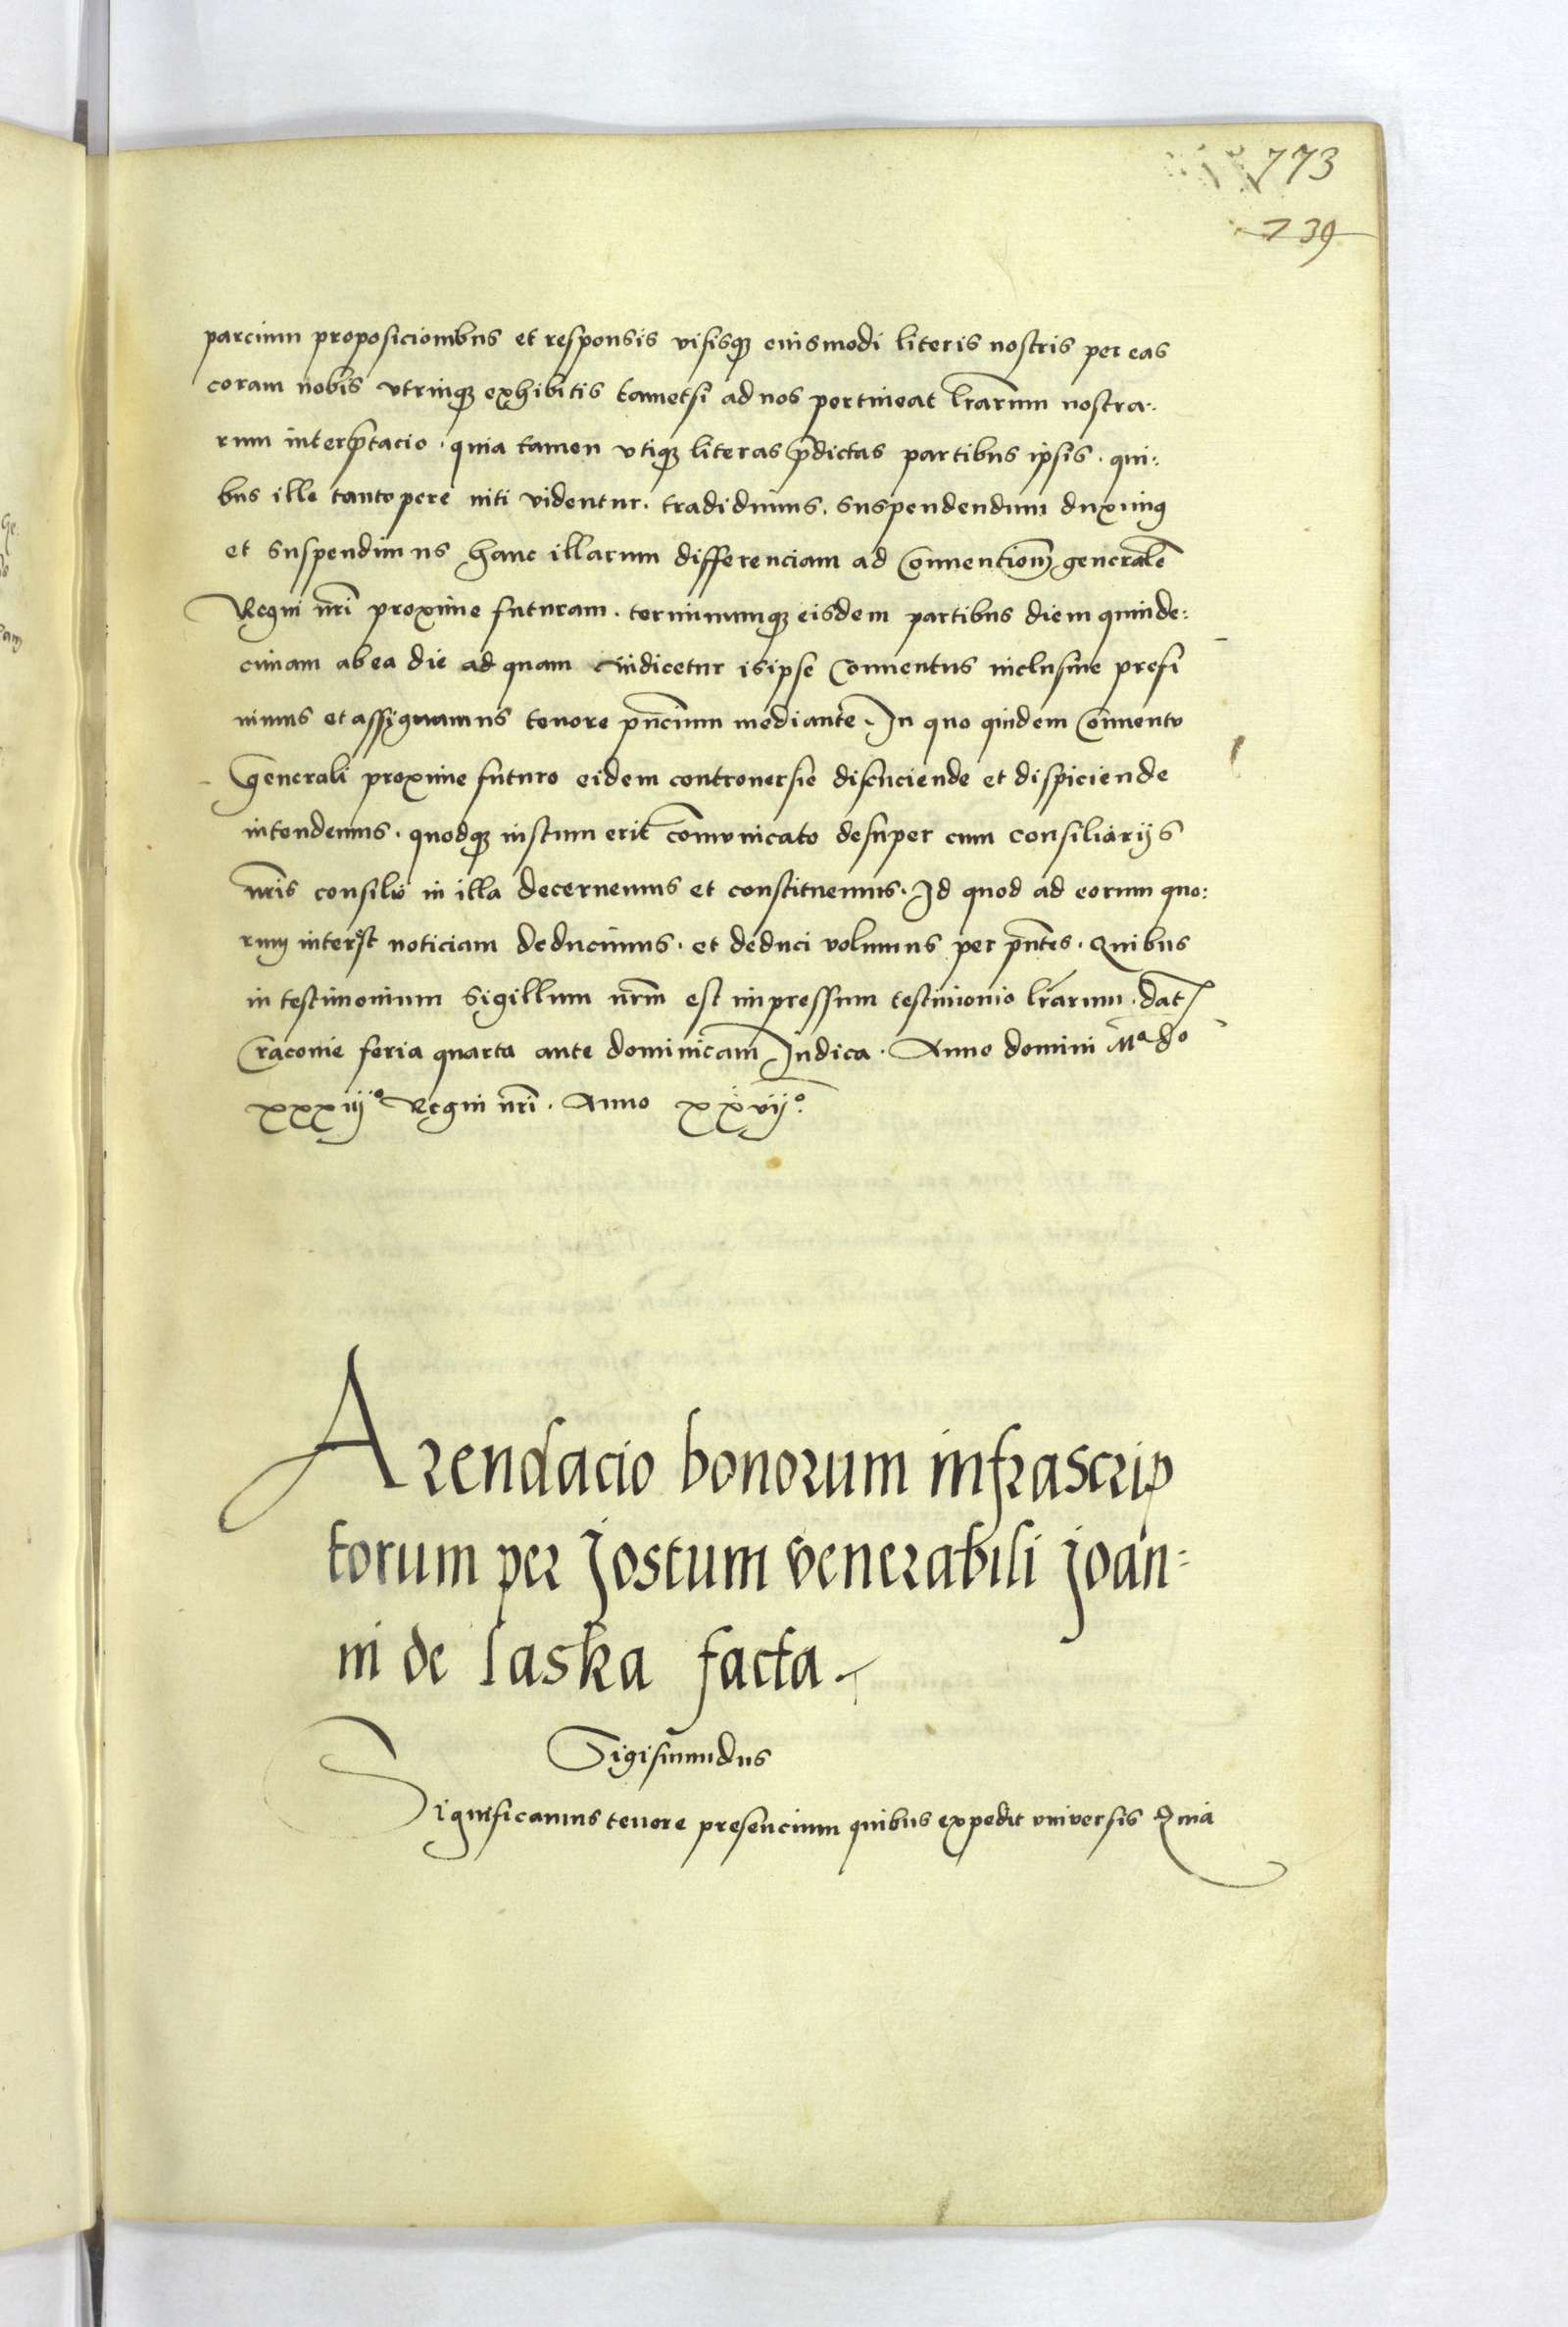 773
739
parcium proposicionibus et responsis visisqȝ eiusmodi literis nostris per eas
coram nobis vtrinqȝ exhibitis tametsi ad nos pertineat lrarum nostra-
rum interp̄tacio. quia tamen vtiqȝ literas p̄dictas partibus ipsis. qui:
bus ille tantopere niti videntur. tradidimus. suspendendum duximus
et suspendimus hanc illarum differenciam ad Conuentionȝ generalē
Regni nr̄i proxime futuram. terminumqȝ eisdem partibus diem quinde:
cimam ab ea die ad quam indicetur is ipse Conuentus inclusiue prefi
nimus et assignamus tenore pn̄cium mediante. In quo quidem Conuentu
Generali proxime futuro eidem controuersie discuciende et dispiciende
intendemus. quodqȝ iustum erit com̄unicato desuper cum consiliarijs
nr̄is consilio in illa decernemus et constituemus. Id quod ad eorum quo:
rum interest noticiam deducimus. et deduci volumus per pn̄tes. Quibus
in testimonium Sigillum nr̄m est impressum testimonio lrārum. dat
Cracouie feria quarta ante dominicam Iudica. Anno domini Mº dº
xxxiijº Regni nr̄i. Anno xxvijº.
Arendacio bonorum infrascrip
torum per Jostum venerabili Joan=
ni de laska facta.
Sigismundus
Significamus tenore presencium quibus expedit vniversis Quia